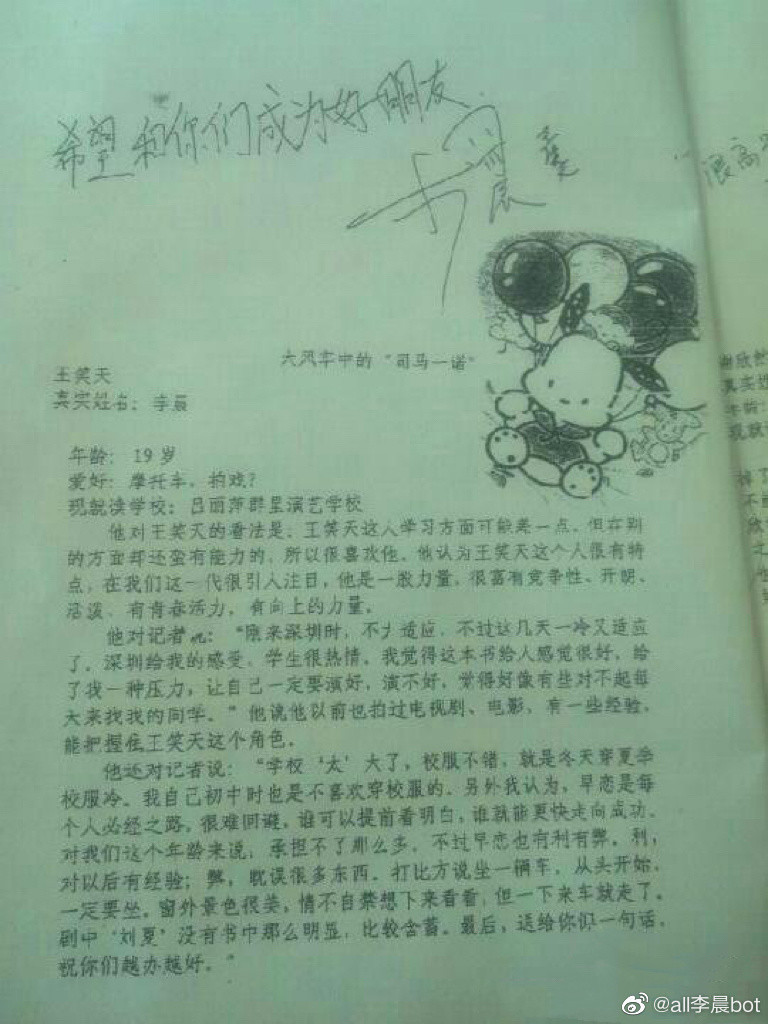 希望和你们成为好朋友
李晨
"浪高
六风车中的"司马一诺"
王笑天
真实姓名:李晨
年龄:19岁
爱好:摩托车、拍戏?
现就读学校:吕丽萍群星演艺学校
他对王笑天的看法是:王笑天这人学习方面可能差一点,但在别
的方面却还蛮有能力的,所以很喜欢他。他认为王笑天这个人很有特
点,在我们这一代很引人注目,他是一股力量,很富有竞争性、开朗、
活泼、有青春活力,有向上的力量。
他对记者说:"原来深圳时,不大适应,不过这几天一冷又适应
了。深圳给我的感受,学生很热情。我觉得这本书给人感觉很好,给
了我一种压力,让自己一定要演好,演不好,觉得好像有些对不起每
天来找我的同学。"他说他以前也拍过电视剧、电影,有一些经验,
能把握住王笑天这个角色。
他还对记者说:"学校'太'大了,校服不错,就是冬天穿夏季
校服冷。我自己初中时也是不喜欢穿校服的。另外我认为,早恋是每
个人必经之路,很难回避,谁可以提前看明白,谁就能更快走向成功。
对我们这个年龄来说,承担不了那么多。不过早恋也有利有弊。利,
对以后有经验;弊,耽误很多东西。打比方说坐一辆车,从头开始,
一定要坐。窗外景色很美,情不自禁想下来看看,但一下来车就走了。
剧中'刘夏'没有书中那么明显,比较含蓄。最后,送给你们一句话,
祝你们越办越好。"
谢欣然
真实姓
年龄:
现就
@all李晨bot